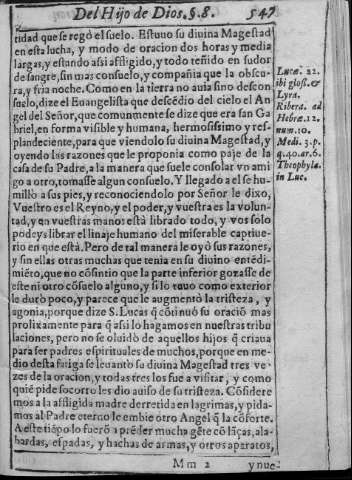 Del Hijo de Dios. §. 8. 547
tidad que se regó el suelo. Estuvo su diuina Magestad
en esta lucha, y modo de oracion dos horas y media
largas, y estando assi afligido, y todo teñido en sudor
de sangre, sin mas consuelo, y compañia que la obscu-
ra, y fria noche. Como en la tierra no auia sino descon
suelo, dize el Euangelista que descēdio del cielo el An
gel del Señor, que comunmente se dize que era san Ga
briel, en forma visible y humana, hermosissimo y res-
plandeciente, para que viendolo su diuina Magestad, y
oyendo las razones que le proponia como paje de la
casa de su Padre, a la manera que suele consolar vn ami
go a otro, tomasse algun consuelo. Y llegado a el se hu-
milló a sus pies, y reconociendolo por Señor le dixo,
Vuestro es el Reyno, y el poder, y vuestra es la volun-
tad, y en vuestras manos està librado todo, y vos solo
podeys librar el linaje humano del miserable captiue-
rio en que està. Pero de tal manera le oyó sus razones,
y sin ellas otras muchas que tenia en su diuino entēdi-
miēto, que no cōsintio que la parte inferior gozasse de
este ni otro cōsuelo alguno, y si lo tuuo como exterior
le duró poco, y parece que le augmentò la tristeza, y
agonia, porque dize S. Lucas q̃ cōtinuó su oració mas
prolixamente para q̃ assi lo hagamos en nuestras tribu
laciones, pero no se oluidò de aquellos hijos q̃ criaua
para ser padres espirituales de muchos, porque en me-
dio desta fatiga se leuantò su diuina Magestad tres ve-
zes de la oracion, y todas tres los fue a visitar, y como
quiē pide socorro les dio auiso de su tristeza. Cōsidere
mos a la affligida madre derretida en lagrimas, y pida-
mos al Padre eterno le embie otro Angel q̃ la cōforte.
A este tiēpo lo fuerō a prēder mucha gēte cō lāças, ala-
bardas, espadas, y hachas de armas, y otros aparatos,
Mm 2 y nue-
Lucæ. 22.
ibi glos. &
Lyra.
Ribera. ad
Hebræ. 12.
num. 10.
Medi. 3. p.
q. 40. ar. 6.
Theophylæ.
in Luc.